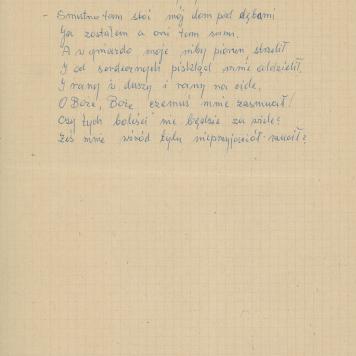 - Smutno tam stoi mój dom pod dębami
Ja zostałem a oni tam sami.
A w gniazdo moje niby piorun strzelił
I od serdecznych piskląd mnie oddzielił,
I rany w duszy i rany na ciele,
O Boże, Boże czemuś mnie zasmucił!
Czy tych boleści nie będzie za wiele?
Żeś mnie wśród tylu nieprzyjaciół rzucił?